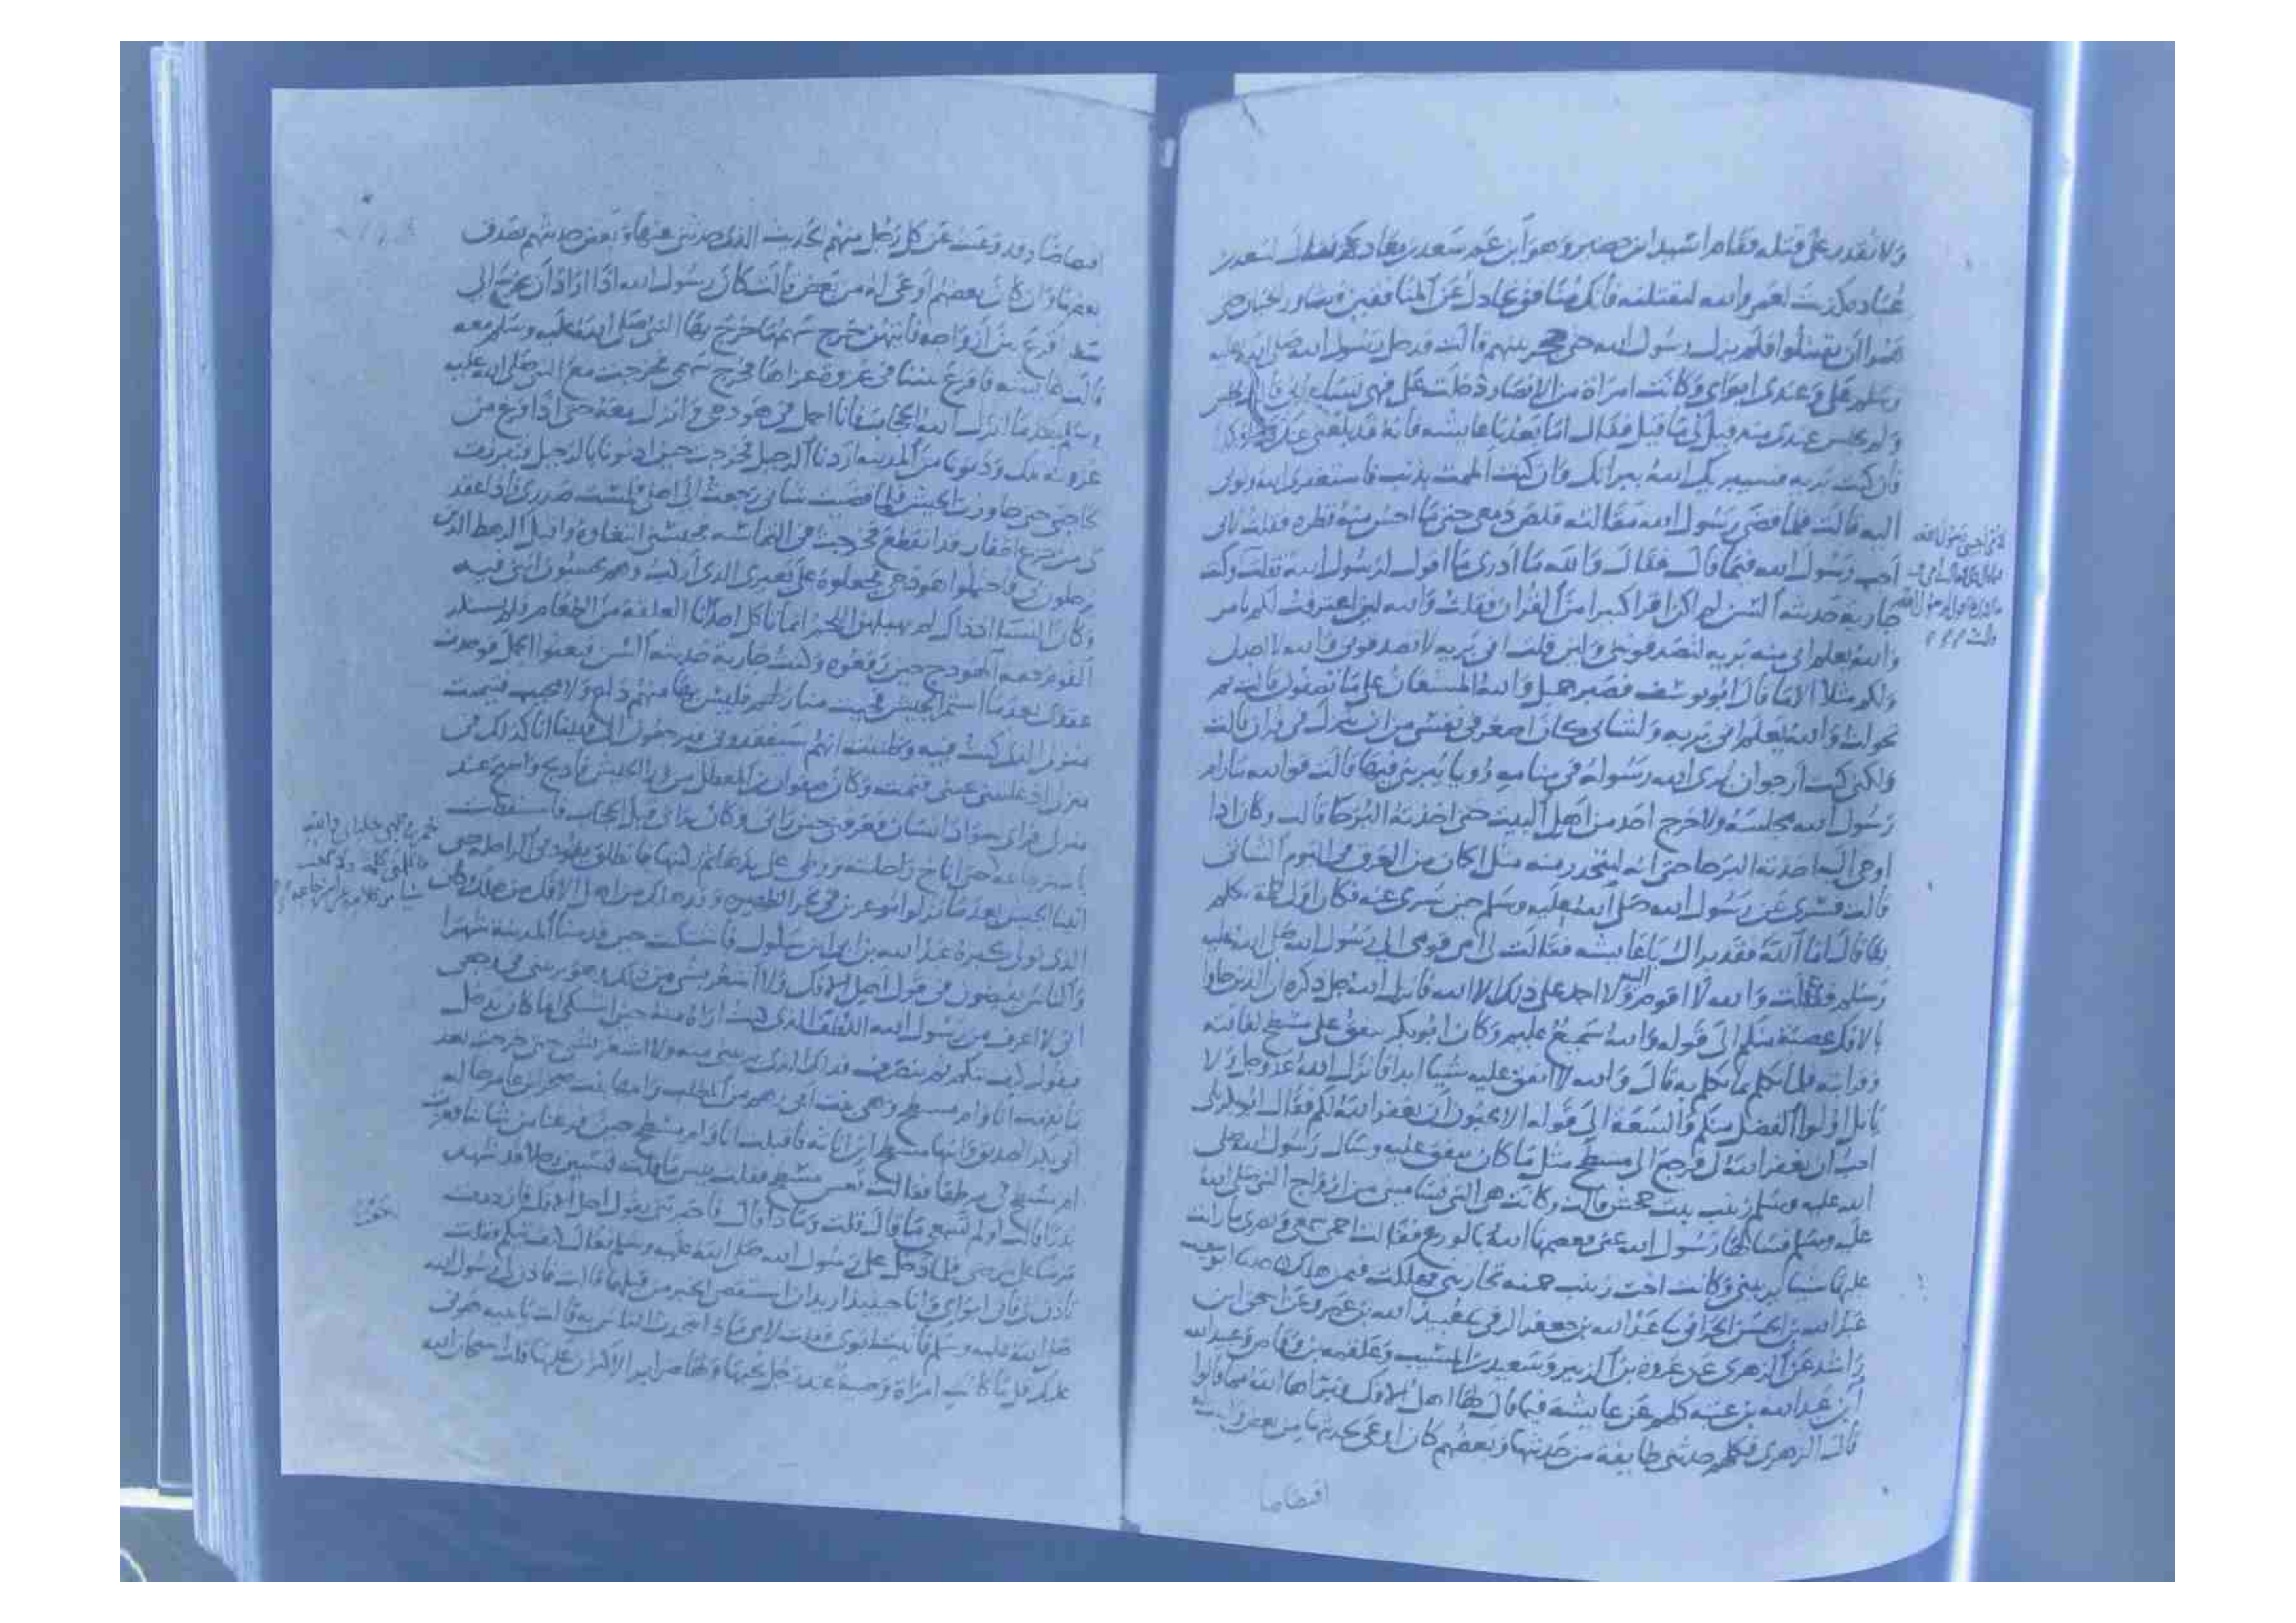 ولا تقدر على قتله فقام اسيد ابن حضير وهو ابن عم سعد بن معاد فقال لسعد بن
عباد كذبت لعمر والله لنقتلنه فانك منافق تجادل عن المنافقين وتثاور الحيان حتى
هموا ان يقتتلوا فلم يزل رسول الله حتى حجز بينهم قالت ودخل رسول الله صلى الله عليه
وسلم على وعندى ابواى وكانت امراة من الانصار دخلت على فجلس
ولم يجلس عندى منذ قيل لى ما قيل فقال اما بعد يا عايشه فانه قد بلغنى عنك كذا وكذا
فان كنت بريه فسيبريك الله ببراتك وان كنت الممت بذنب فاستغفرى الله وتوبى
اليه قالت فلما قضى رسول الله مقالته قلص دمعى حتى ما احس منه قطره فقلت لابى
اجب رسول الله فيما قال فقال والله ما ادرى ما اقول لرسول الله فقلت وكنت
جارية حديثه السن لم اكن اقرا كبيرا من القران فقلت والله لين اعترفت لكم بامر
والله يعلم انى منه بريه لتصدقونى ولين قلت انى بريه لا تصدقونى والله لا اجد لى
ولكم مثلا الا ما قال ابو يوسف فصبر جميل والله المستعان على ما تصفون قالت ثم
تحولت والله يعلم انى بريه ولشانى كان اصغر فى نفسى من ان ينزل فى قران قالت
ولكنى كنت ارجو ان يرى الله رسوله فى منامه رويا يبرينى فيها قالت فوالله ما رام
رسول الله مجلسه ولا خرج احد من اهل البيت حتى اخذته البرحا قالت وكان اذا
اوحى اليه اخذته البرحا حتى انه ليتحدر منه مثل الجمان من العرق فى اليوم الشاتى
قالت فسرى عن رسول الله صلى الله عليه وسلم حين سرى عنه فكان اول كلمة تكلم
بها قال اما الله فقد براك يا عايشه فقالت لى امى قومى الى رسول الله صلى الله عليه
وسلم فقلت والله لا اقوم اليه ولا احمد على ذلك الا الله فانزل الله جل ذكره ان الذين جاوا
بالافك عصبة منكم الى قوله والله سميع عليم وكان ابو بكر ينفق على مسطح لفاقته
وقرابته فلما تكلم بما تكلم به قال والله لا انفق عليه شيا ابدا فانزل الله عز وجل ولا
ياتل اولوا الفضل منكم والسعة الى قوله الا تحبون ان يغفر الله لكم فقال ابو بكر بلى
احب ان يغفر الله لى فرجع الى مسطح مثل ما كان ينفق عليه وسال رسول الله صلى
الله عليه وسلم زينب بنت جحش قالت وكانت هى التى تسامينى من ازواج النبى صلى الله
عليه وسلم فسالها رسول الله عنى فعصمها الله بالورع فقالت احمى سمعى وبصرى ما رات
عليها شيا يريبنى وكانت اخت زينب حمنه تحاربنى فهلكت فيمن هلك حدثنا ابو شعيب
عبد الله بن الحسن الحرانى عبد الله بن جعفر الرقى عبيد الله بن عمرو عن اسحق ابن
راشد عن الزهرى عن عروة بن الزبير وسعيد بن المسيب وعلقمه بن وقاص وعبيد الله
ابن عبد الله بن عتبه كلهم عن عايشه فيما قال لها اهل الافك فبراها الله مما قالوا
قال الزهرى فكلهم حدثنى طايفة من حديثها وبعضهم كان اوعى لحديثها من بعض
اقتصاصا
اقتصاصا وقد وعيت عن كل رجل منهم الحديث الذى حدثنى عنها وبعض حديثهم يصدق
بعضا وان كان بعضهم اوعى له من بعض قالت كان رسول الله اذا اراد ان يخرج الى
سفر اقرع بين ازواجه فايتهن خرج سهمها خرج بها النبى صلى الله عليه وسلم معه
قالت عايشه فاقرع بيننا فى غزوة غزاها فخرج سهمى فخرجت مع النبى صلى الله عليه
وسلم بعد ما انزل الله الحجاب فانا احمل فى هودجى وانزل معه حتى اذا فرغ من
غزوته تلك ودنونا من المدينه اردنا الرحيل فخرجت حين اذنونا بالرحيل فتبرزت
لحاجتى حتى جاوزت الجيش فلما قضيت شانى رجعت الى رحلى فلمست صدرى فاذا عقد
لى من جزع اظفار قد انقطع فخرجت فى التماسه فحبسنى ابتغاوه واقبل الرهط الذين
يرحلون فى فاحتملوا هودجى فجعلوه على بعيرى الذى اركب وهم يحسبون انى فيه
وكان النسا اذ ذاك لم يهبلهن اللحم انما تاكل احدانا العلقة من الطعام فلم يستنكر
القوم خفه الهودج حين رفعوه وكنت جارية حديثه السن فبعثوا الجمل فوجدت
عقدى بعد ما استمر الجيش فجيت منازلهم فليس بها منهم داع ولا مجيب فتيممت
منزلى الذى كنت فيه وظننت انهم سيفقدونى فيرجعون الى فبينا انا كذلك فى
منزلى اذ غلبتنى عينى فنمت وكان صفوان بن المعطل من ورا الجيش فادلج واصبح عند
منزلى فراى سواد انسان فعرفنى حين رانى وكان يرانى قبل الحجاب فاستيقظت
باسترجاعه حتى اناخ راحلته ووطى على يدها ثم ركبتها فانطلق يقود بى الراحله حتى
اتينا الجيش بعد ما نزلوا موغرين فى نحر الظهيره وقد هلك من اهل الافك من هلك وكان
الذى تولى كبره عبد الله بن ابى ابن سلول فاشتكيت حين قدمنا المدينة شهرا
والناس يفيضون فى قول اهل الافك ولا اشعر بشى من ذلك وهو يريبنى فى وجعى
انى لا اعرف من رسول الله اللطف الذى كنت اراه منه حين اشتكى انما كان يدخل
فيقول كيف تيكم ثم ينصرف فذاك الذى يريبنى منه ولا اشعر بالشر حتى خرجت بعد
ما نقهت انا وام مسطح وهى بنت ابى رهم بن المطلب وامها بنت صخر بن عامر خاله
ابى بكر الصديق وابنها مسطح ابن اثاثه فاقبلت انا وام مسطح حين فرغنا من شاننا فعثرت
ام مسطح فى مرطها فقالت تعس مسطح فقلت بيس ما قلت تسبين رجلا قد شهد
بدرا قالت اولم تسمعى ما قال قلت وماذا قال فاخبرتنى بقول اهل الافك فازددت
مرضا على مرضى فلما دخل على رسول الله صلى الله عليه وسلم فقال كيف تيكم فقلت
تاذن لى فاتى ابواى وانا حينيذ اريد ان استقص الخبر من قبلهما قالت فاذن لى رسول الله
صلى الله عليه وسلم فاتيت ابوى فقلت لامى ماذا يتحدث الناس به قالت يا بنيه هونى
عليك فلما كانت امراة وضية عند رجل يحبها ولها ضراير الا اكثرن عليها قلت سبحان الله